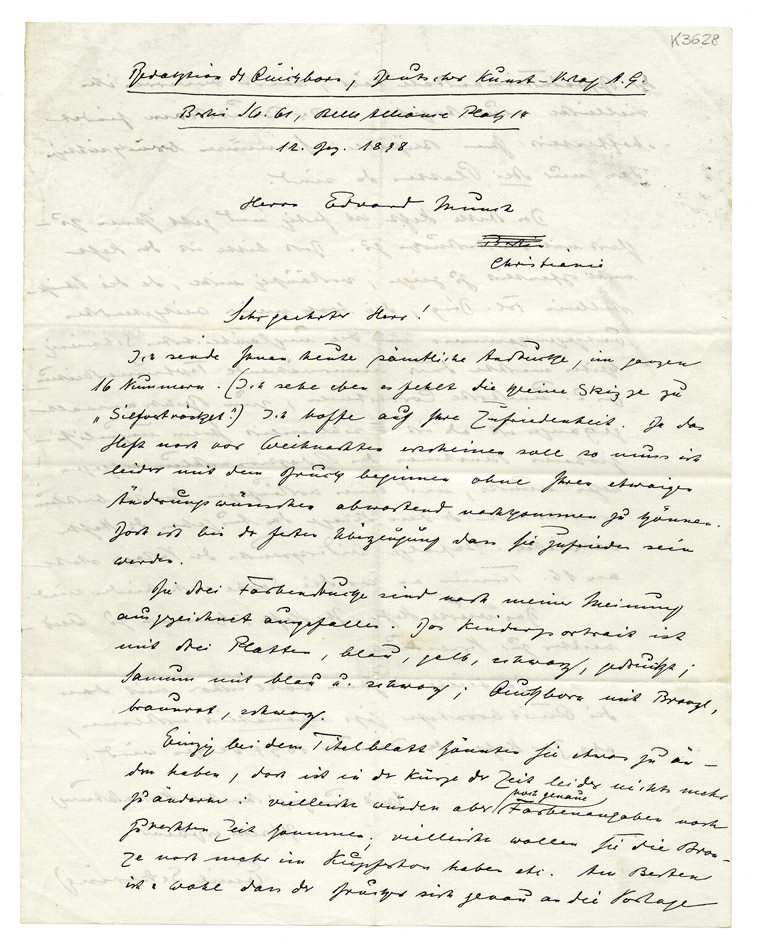 K3628
Redaktion des Quickborn, Deutscher Kunst-Verlag A.G.
Berlin SW. 61, Belle Alliance Platz 18
12. Dez. 1898
Herrn Edvard Munch
Berlin
Christiania
Sehr geehrter Herr!
Ich sende Ihnen heute sämtliche Andrucke, im ganzen
16 Nummern. (Ich sehe eben es fehlt die kleine Skizze zu
"Silfversträcket".) Ich hoffe auf Ihre Zufriedenheit. Da das
Heft noch vor Weihnachten erscheinen soll so muss ich
leider mit dem Druck beginnen ohne Ihren etwaigen
Änderungswünschen abwartend nachkommen zu können.
Doch ich bin der festen Überzeugung dass Sie zufrieden sein
werden.
Die drei Farbendrucke sind nach meiner Meinung
ausgezeichnet ausgefallen. Das Kinderportrait ist
mit drei Platten, blau, gelb, schwarz, gedruckt;
Samum mit blau u. schwarz; Quickborn mit Bronze,
braunrot, schwarz.
Einzig bei dem Titelblatt könnten Sie etwas zu än-
dern haben, doch ist in der Kürze der Zeit leider nichts mehr
zu ändern: vielleicht würden aber noch genaue Farbenangaben noch
zur rechten Zeit kommen; vielleicht wollen Sie die Bron-
ze noch mehr im Kupferton haben etc. Am Besten
ist's wohl dass der Drucker sich genau an die Vorlage